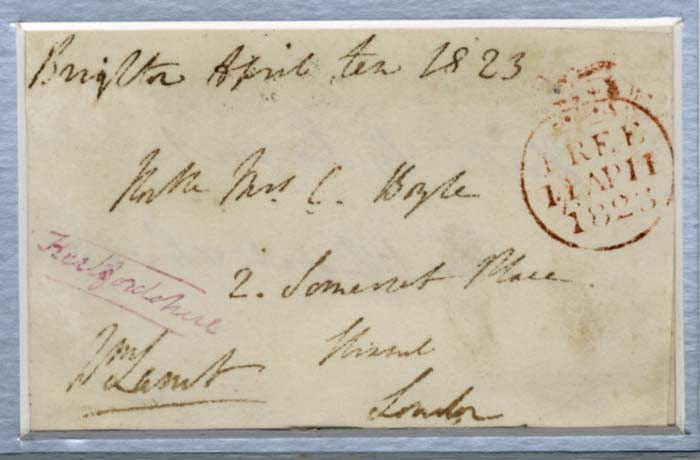 Brighton April ten 1823
FREE
11 AP 11
1823
Honble Mrs C. Boyle
Hertfordshire
2. Somerset Place
Strand
Wm Lamb
London